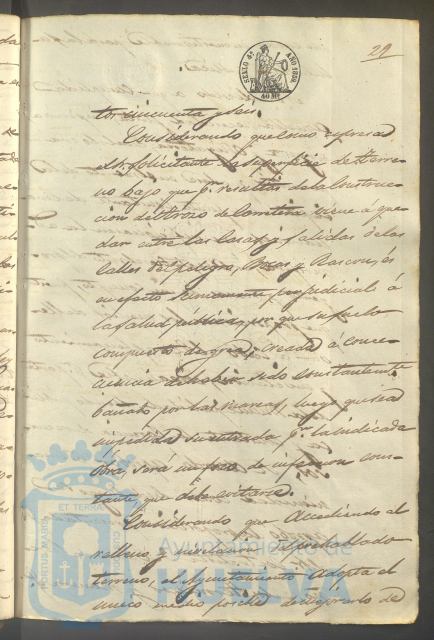 29
SELLO 4º AÑO 1860
40 Ms
tos cincuenta y seis.
Considerando que como espresa
el Sr. Solicitante la superficie de terre-
no bajo que pr. resultas de la construc-
cion del trozo de Carretera viene á que-
dar entre las Casas y salidas de las
Calles del Peligro, Bocas y Rascon, és
en efecto sumamente perjudicial á
la salud pública, por que su suelo
compuesto de creada á conse-
cuencia de haber sido constantemente
bañado por las mareas, luego que sea
impedida su entrada pr. la indicada
obra, será un foco de infeccion cons-
tante, que debe evitarse.
Considerando que Accediendo al
relleno y nivelacion del precitado
terreno, el Ayuntamiento Adopta el
unico medio posible de mejorarlo de
ET TERRA
PORTUS MARIS
CUSTODIA
Ayuntamiento de
HUELVA